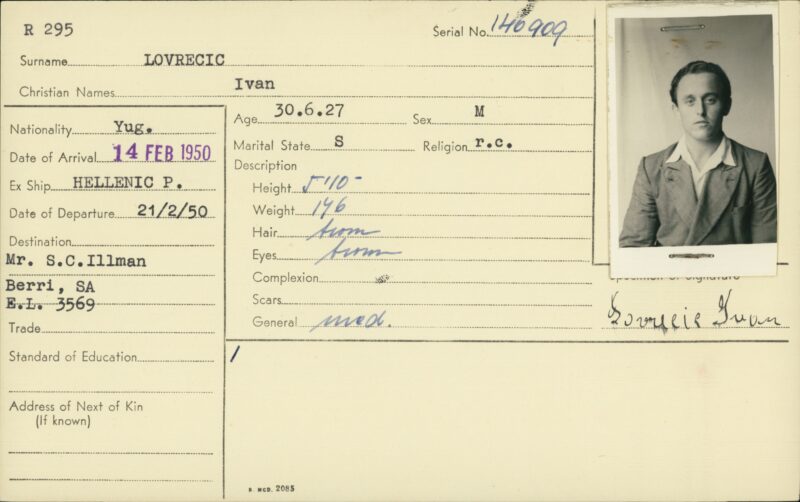 R 295
Serial No. 140909
Surname LOVRECIC
Christian Names Ivan
Nationality Yug.
Date of Arrival 14 FEB 1950
Ex Ship HELLENIC P.
Date of Departure 21/2/50
Destination
Mr. S.C.Illman
Berri, SA
E.L. 3569
Trade
Standard of Education
Address of Next of Kin
(If known)
Age 30.6.27 Sex M
Marital State S Religion r.c.
Description
Height 5'10"
Weight 146
Hair brown
Eyes brown
Complexion
Scars
General med.
Specimen of Signature
Lovrecic Ivan
R. MCD. 2085